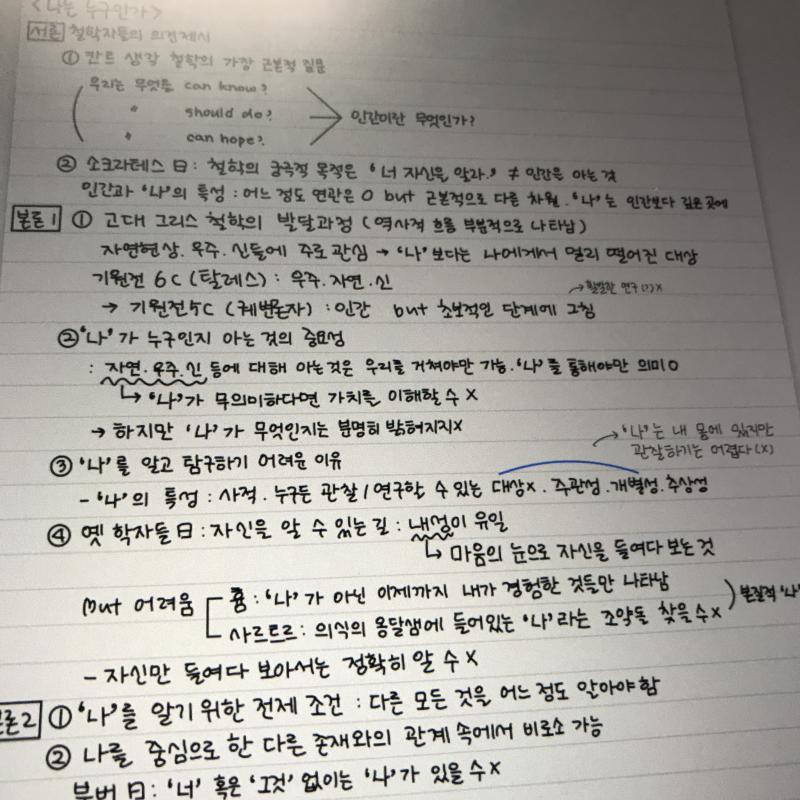 <나는 누구인가>
서론 철학자들의 의견제시
① 칸트 생각 철학의 가장 근본적 질문
우리는 무엇을 can know?
〃 should do? 인간이란 무엇인가?
〃 can hope?
② 소크라테스 曰 : 철학의 궁극적 목적은 '너 자신을 알라.' ≠ 인간을 아는 것
인간과 '나'의 특성 : 어느 정도 연관은 O but 근본적으로 다른 차원. '나'는 인간보다 깊은 곳에
본론1 ① 고대 그리스 철학의 발달과정 (역사적 흐름 부분적으로 나타남)
자연현상. 우주. 신들에 주로 관심 → '나'보다는 나에게서 멀리 떨어진 대상
기원전 6C (탈레스) : 우주. 자연. 신
→ 활발한 연구(?) x
→ 기원전 5C (궤변론자) : 인간 but 초보적인 단계에 그침
② '나'가 누구인지 아는 것의 중요성
: 자연. 우주. 신 등에 대해 아는 것은 우리를 거쳐야만 가능. '나'를 통해야만 의미 O
↳ '나'가 무의미하다면 가치를 이해할 수 X
→ 하지만 '나'가 무엇인지는 분명히 밝혀지지 X
→ '나'는 내 몸에 있지만
관찰하기는 어렵다 (x)
③ '나'를 알고 탐구하기 어려운 이유
- '나'의 특성 : 사적. 누구든 관찰/연구할 수 있는 대상 x. 주관성. 개별성. 추상성
④ 옛 학자들 曰 : 자신을 알 수 있는 길 : 내성이 유일
↳ 마음의 눈으로 자신을 들여다 보는 것
but 어려움 흄 : '나'가 아닌 이제까지 내가 경험한 것들만 나타남
사르트르 : 의식의 옹달샘에 들어있는 '나'라는 조약돌 찾을 수 x 본질적 '나'
- 자신만 들여다 보아서는 정확히 알 수 X
본론2 ① '나'를 알기 위한 전제 조건 : 다른 모든 것을 어느 정도 알아야 함
② 나를 중심으로 한 다른 존재와의 관계 속에서 비로소 가능
부버 曰 : '너' 혹은 '그것' 없이는 '나'가 있을 수 X